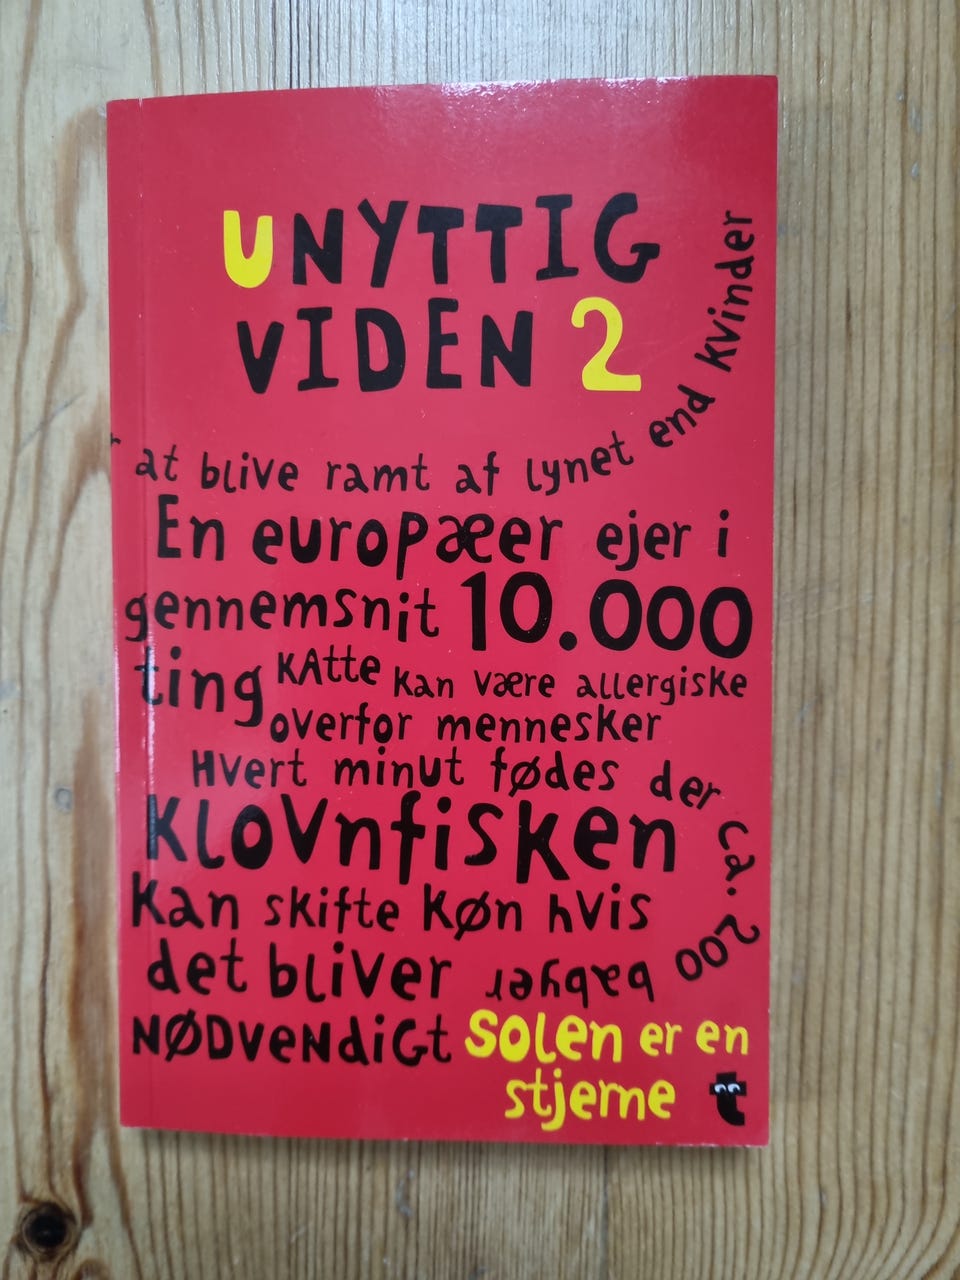 UNYTTIG
VIDEN 2
at blive ramt af lynet end kvinder
En europæer ejer i
gennemsnit 10.000
ting
KAtte kan være allergiske
overfor mennesker
Hvert minut fødes der ca. 200 babyer
Klovnfisken
kan skifte køn hvis
det bliver
NØDVENDIGT
solen er en
stjerne
t